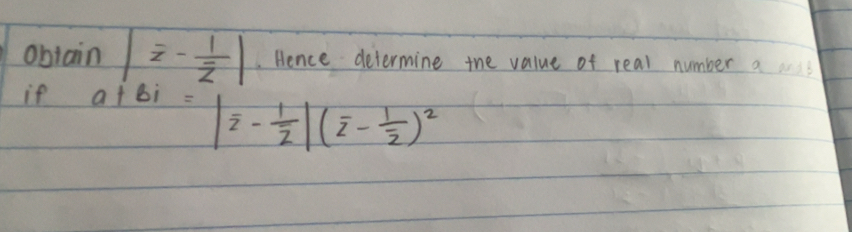 Obtain | z̄ - 1/z̄ | . Hence determine the value of real number a and b
if a + Bi = | z̄ - 1/z̄ | ( z̄ - 1/z̄ )²